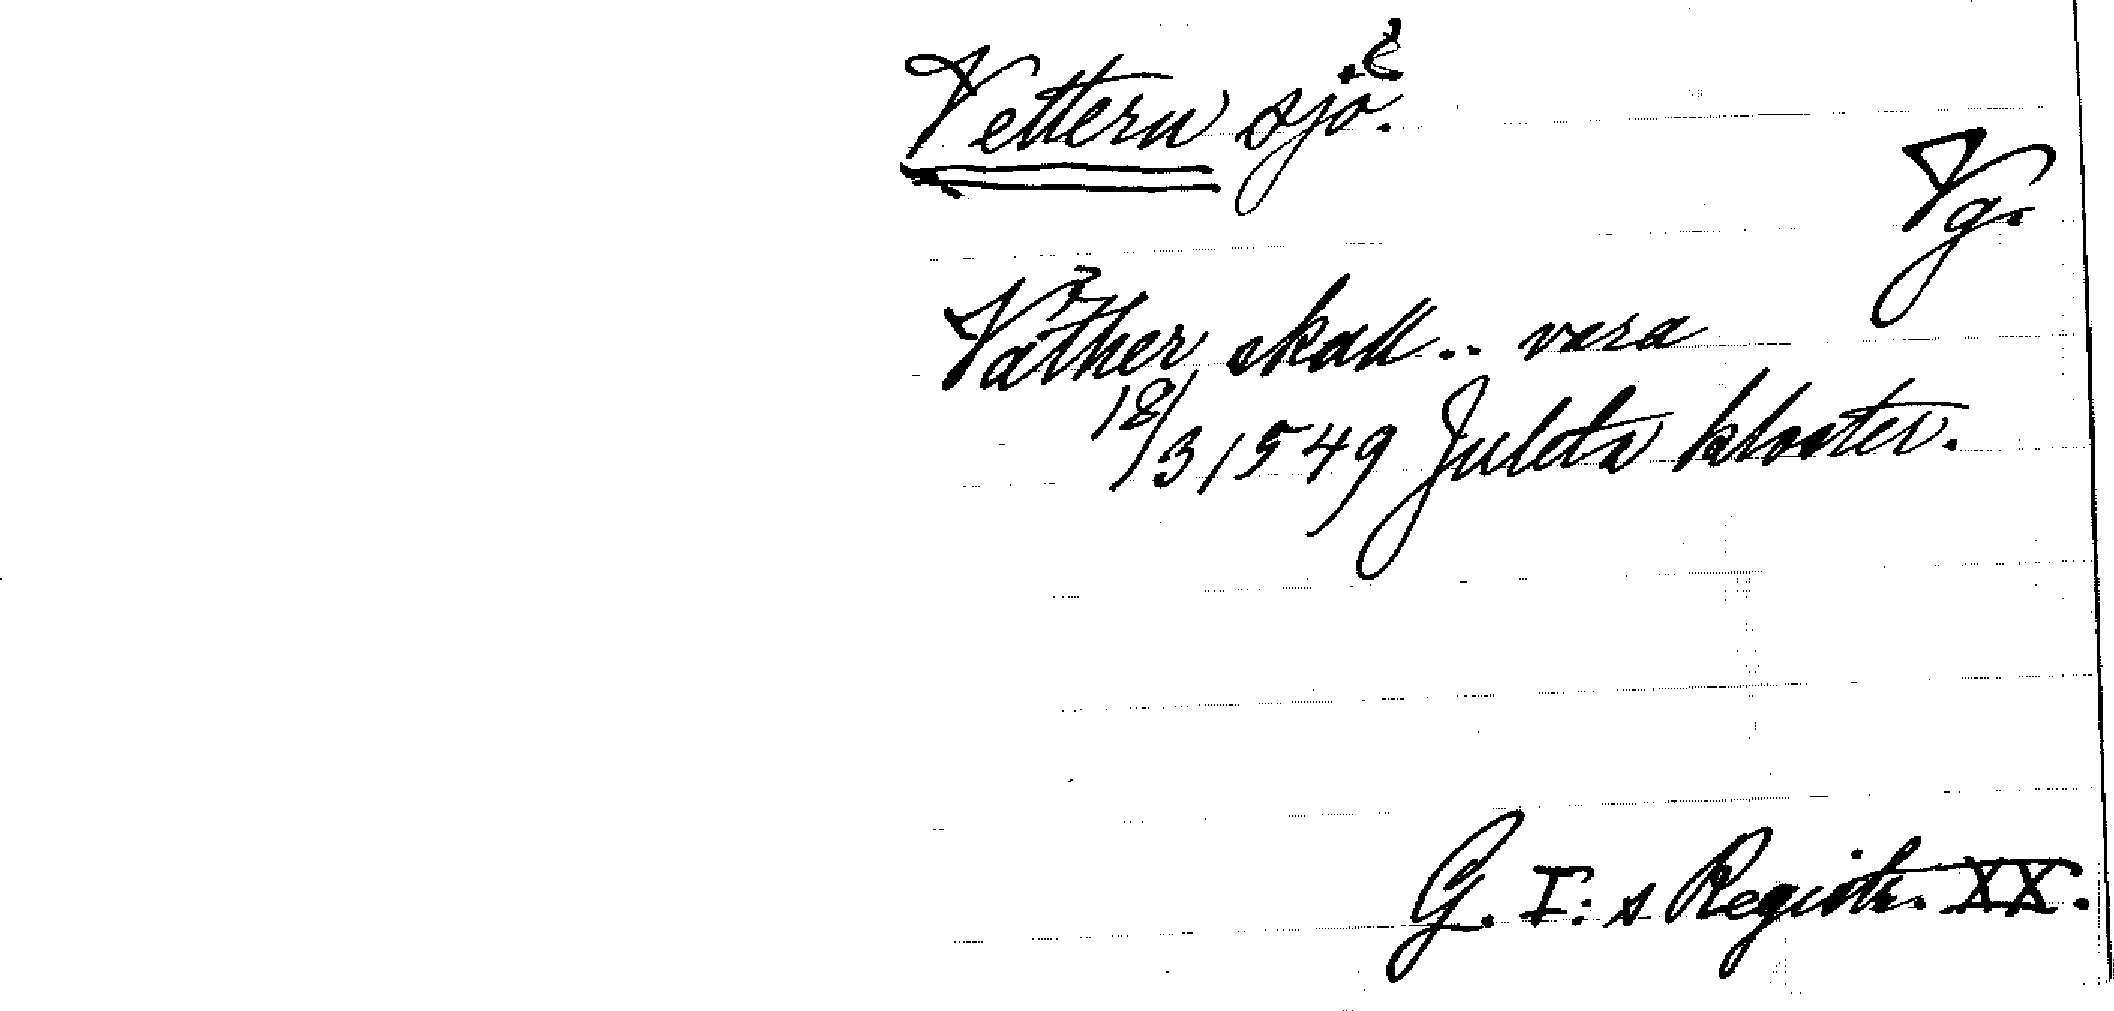 Vettern sjö.
Vg.
Väther skall.. vara
12/3 1549 Juleta kloster.
G. I:s Registr. XX.